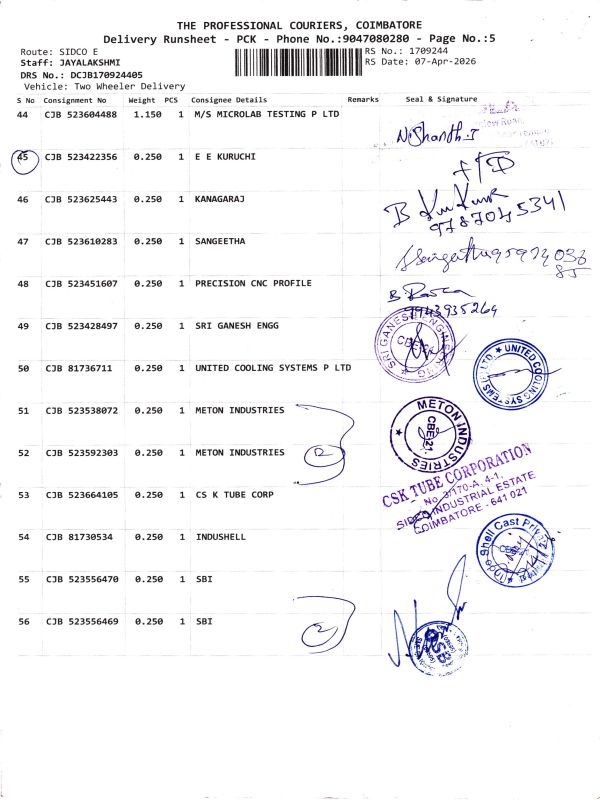 THE PROFESSIONAL COURIERS, COIMBATORE
Delivery Runsheet - PCK - Phone No.:9047080280 - Page No.:5
Route: SIDCO E RS No.: 1709244
Staff: JAYALAKSHMI RS Date: 07-Apr-2026
DRS No.: DCJB170924405
Vehicle: Two Wheeler Delivery
S No Consignment No Weight PCS Consignee Details Remarks Seal & Signature
44 CJB 523604488 1.150 1 M/S MICROLAB TESTING P LTD
Nishanth.J
45 CJB 523422356 0.250 1 E E KURUCHI
46 CJB 523625443 0.250 1 KANAGARAJ
B
9787045341
47 CJB 523610283 0.250 1 SANGEETHA
48 CJB 523451607 0.250 1 PRECISION CNC PROFILE
B
9943935264
49 CJB 523428497 0.250 1 SRI GANESH ENGG
SRI GANESH ENGINEERING
50 CJB 81736711 0.250 1 UNITED COOLING SYSTEMS P LTD
UNITED COOLING SYSTEMS (P) LTD.
51 CJB 523538072 0.250 1 METON INDUSTRIES
METON INDUSTRIES
CBE-21
52 CJB 523592303 0.250 1 METON INDUSTRIES
2
53 CJB 523664105 0.250 1 CS K TUBE CORP
CSK TUBE CORPORATION
No. 3/170-A, 4-1,
SIDCO INDUSTRIAL ESTATE
COIMBATORE - 641 021
54 CJB 81730534 0.250 1 INDUSHELL
Indo Shell Cast Private Limited
55 CJB 523556470 0.250 1 SBI
56 CJB 523556469 0.250 1 SBI
2